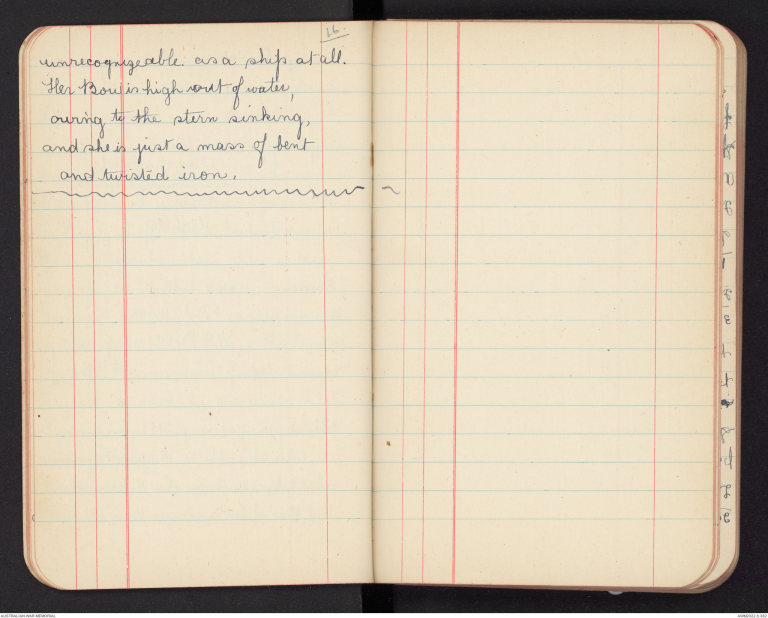 16.
unrecognizeable as a ship at all.
Her Bow is high out of water,
owing to the stern sinking,
and she is just a mass of bent
and twisted iron.
AUSTRALIAN WAR MEMORIAL